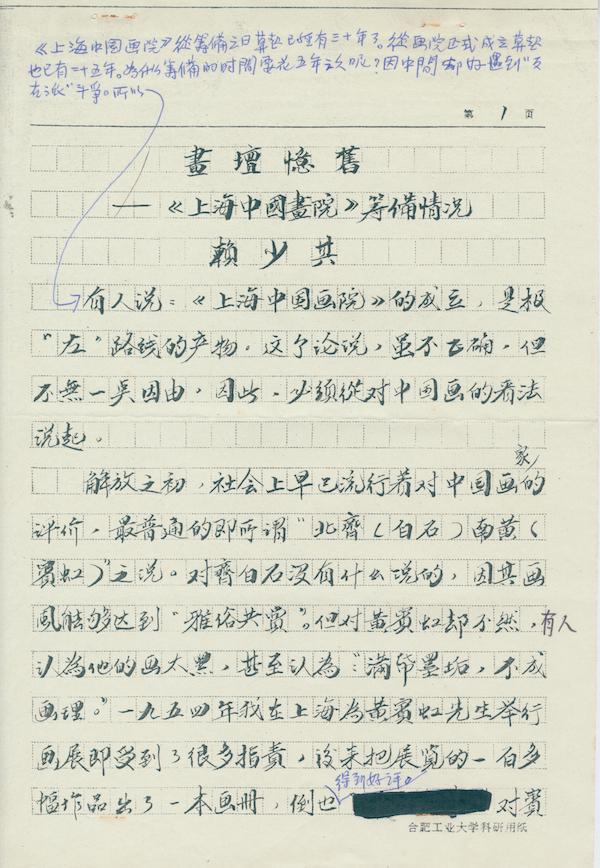 《上海中国画院》從筹備之日算起已經有三十年了。從画院正式成立算起
也已有二十五年。為什么筹備的时间要花五年之久呢？因中間却好遇到“反
右派”斗爭。所以
第 1 页
畫壇憶舊
——《上海中國畫院》筹備情况
賴少其
有人说：《上海中国画院》的成立，是极
“左”路线的产物。这个论说，虽不正确，但
不無一点因由，因此，必须從对中国画的看法
说起。
家
解放之初，社会上早已流行着对中国画的
评价，最普通的即所谓“北齊（白石）南黄（
賓虹）”之说。对齊白石没有什么说的，因其画
風能够达到“雅俗共賞”。但对黄賓虹却不然，有人
认為他的画太黑，甚至认為“滿紙墨垢，不成
画理。”一九五四年我在上海為黄賓虹先生举行
画展即受到了很多指責，後来把展覽的一百多
幅作品出了一本画册，倒也
得到好评。
对賓
合肥工业大学科研用纸